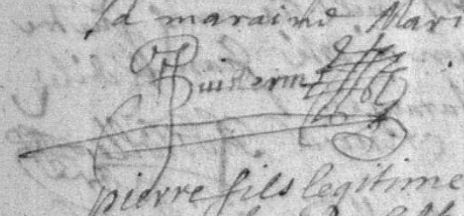 la maraine Mari
Guillerm
pierre fils legitime